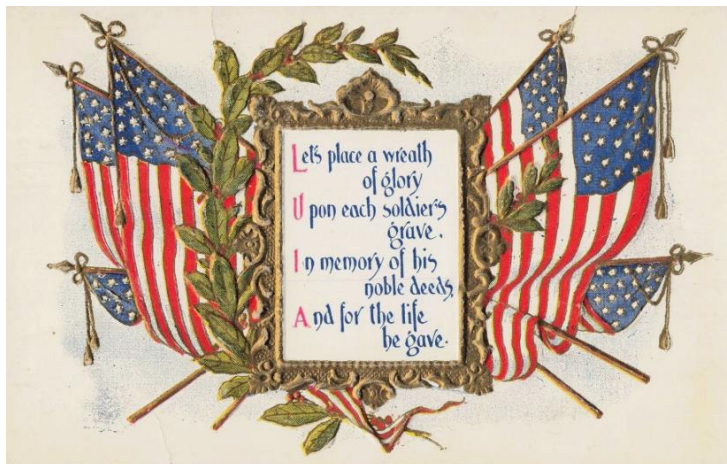 Let's place a wreath
of glory
Upon each soldier's
grave.
In memory of his
noble deeds,
And for the life
he gave.